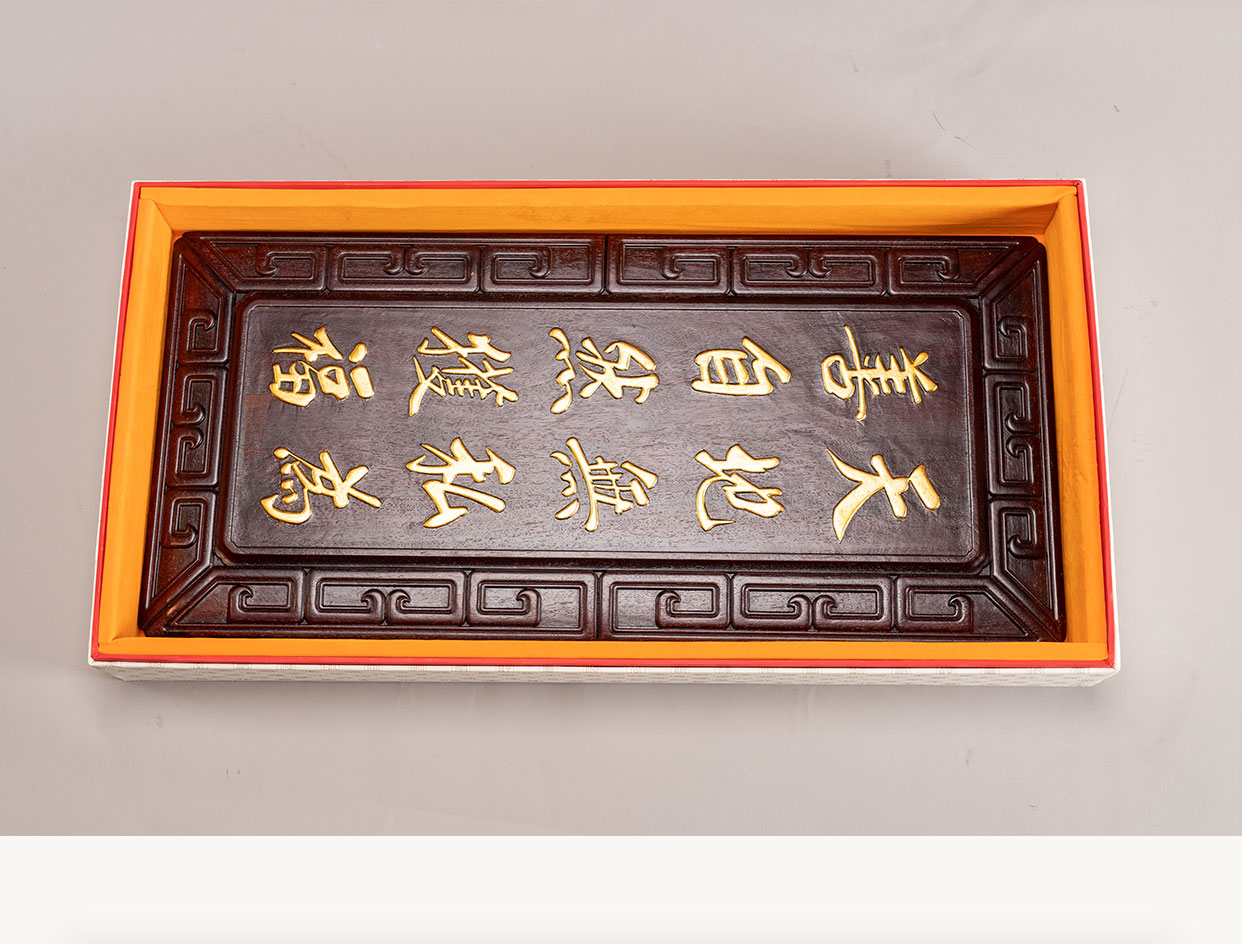 天地無私為
善自然獲福